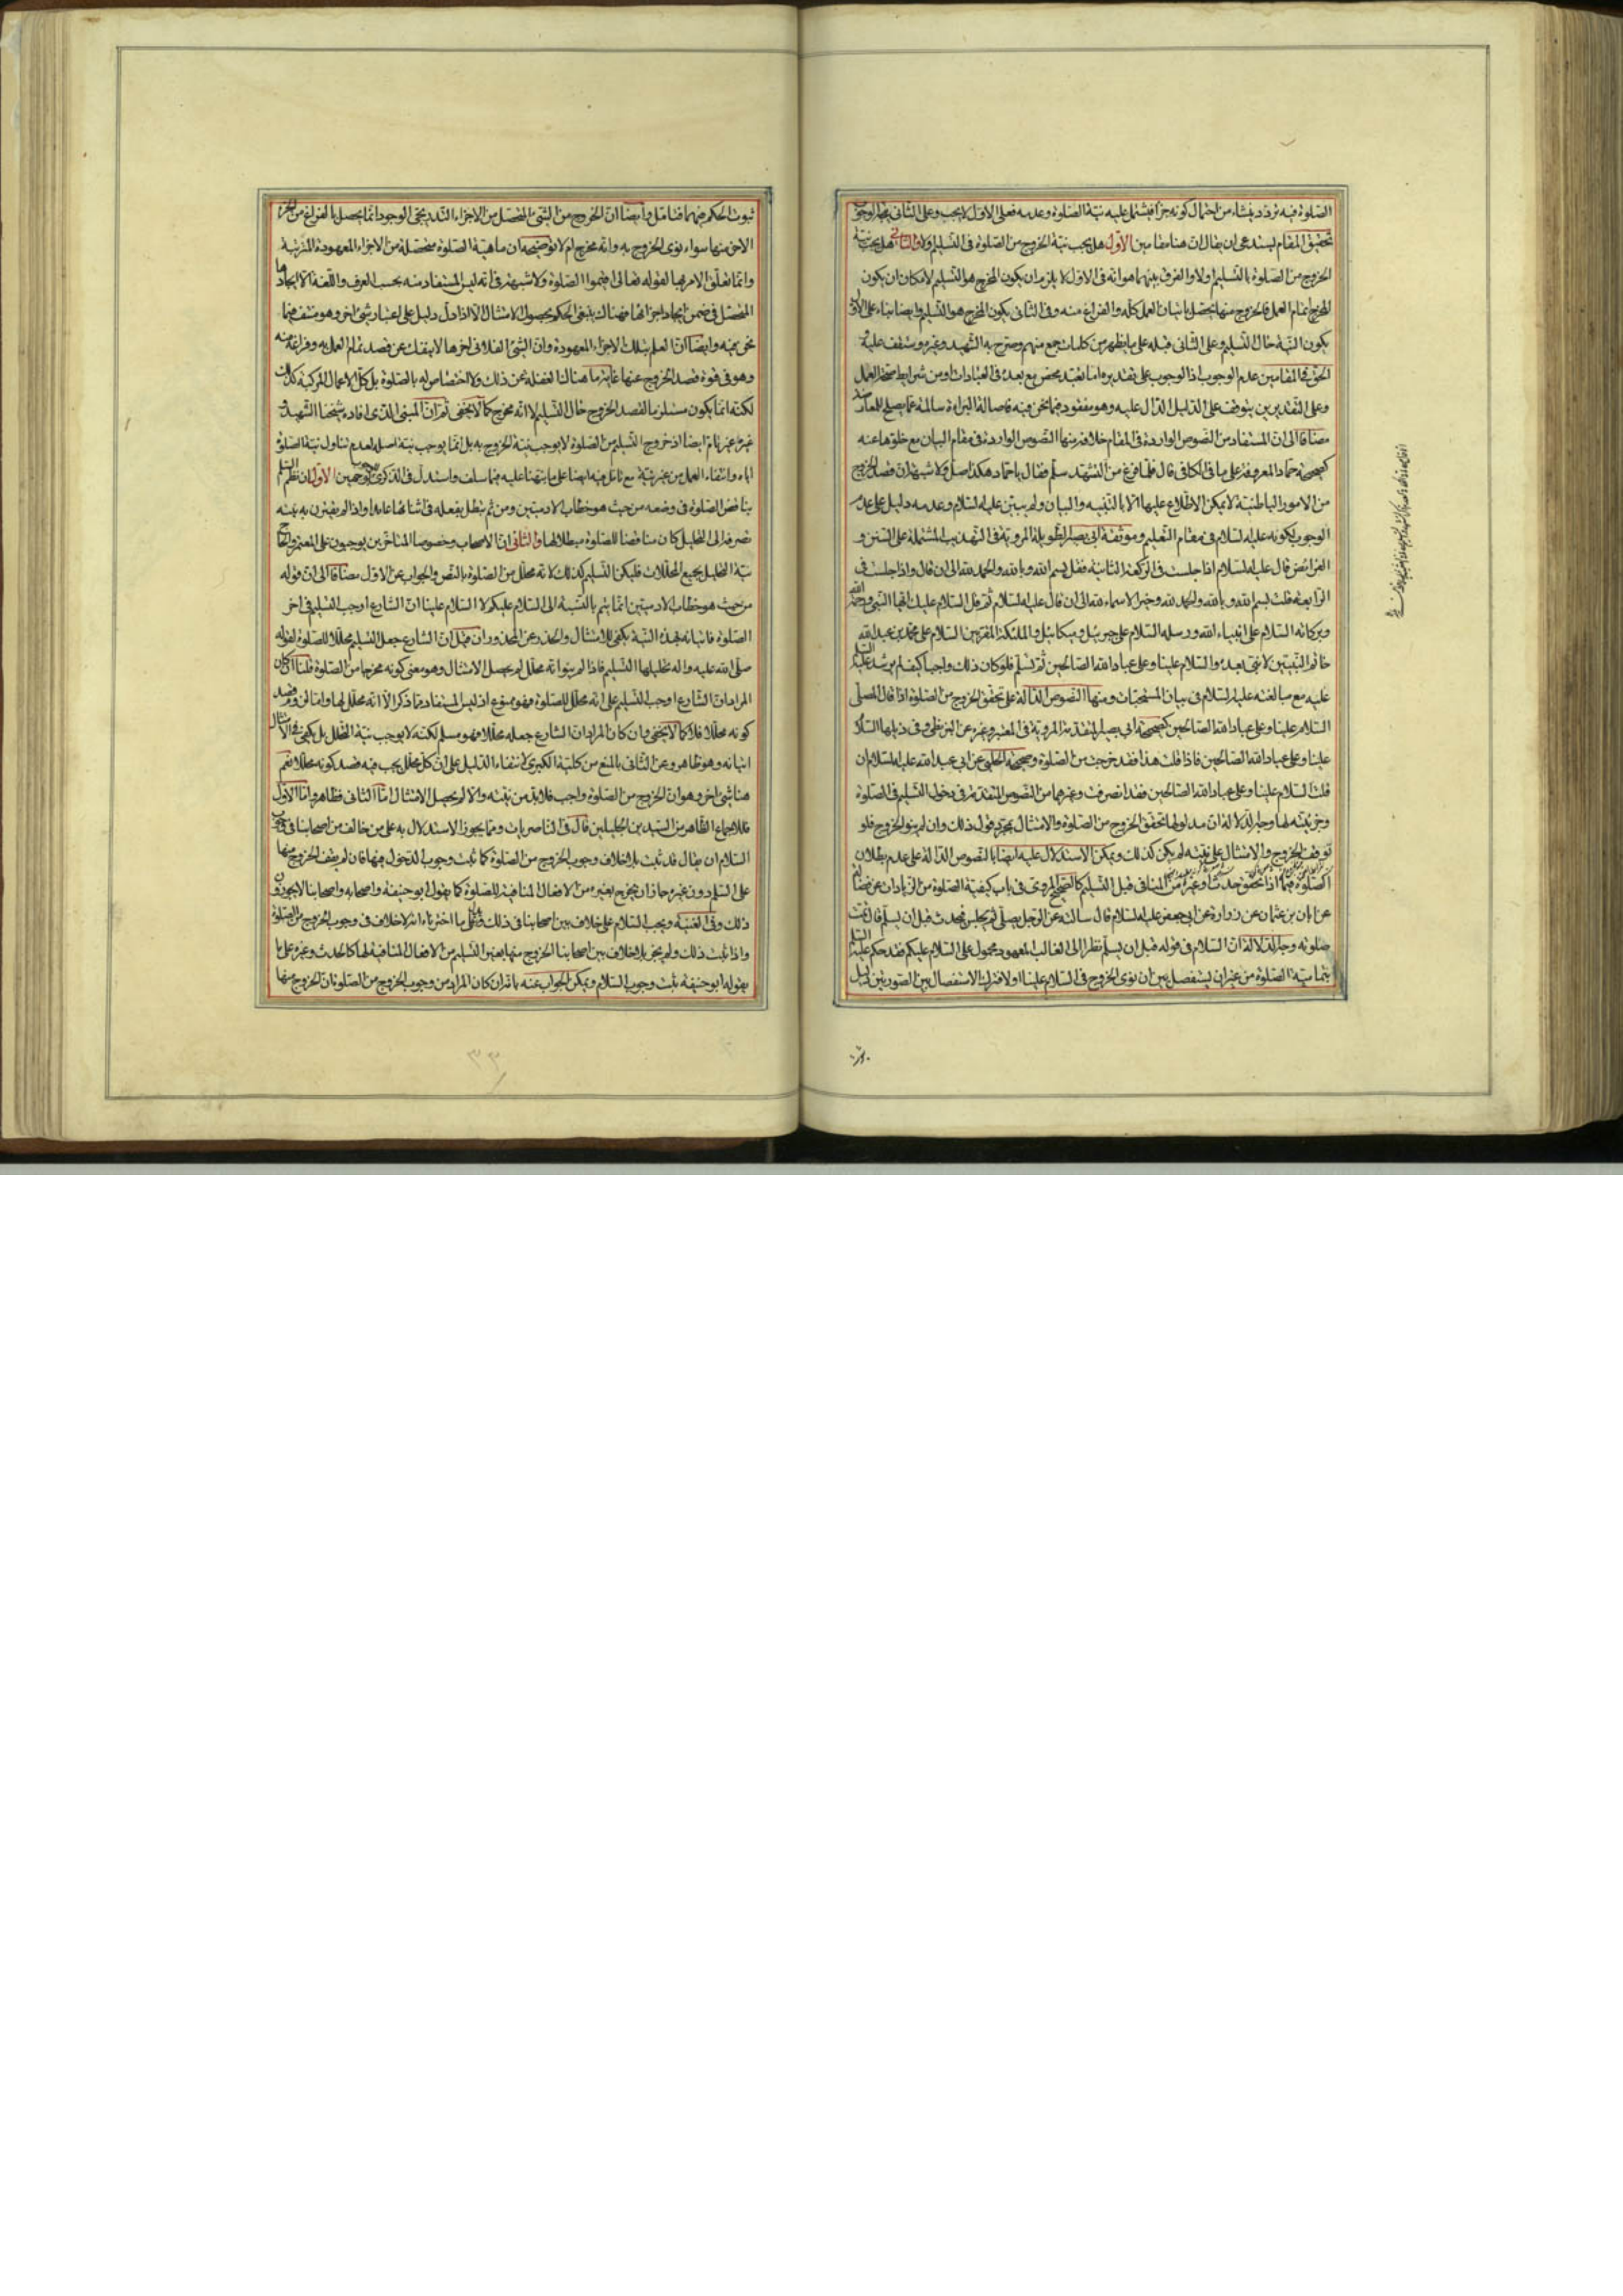 الصلوة فيه تردد ينشاء من احتمال كونه جزأ فيشتمل عليه نية الصلوة وعدمه فعلى الاول لا يجب وعلى الثانى يظهر الوجوب
تحقيق المقام يستدعى ان يقال ان هنا مقامين الاول هل يجب نية الخروج من الصلوة فى التسليم ولا والثانى هل يجب نية
الخروج من الصلوة بالتسليم اولا والفرق بينهما هو انه فى الاول لا يلزم ان يكون المخرج هو التسليم لامكان ان يكون
المخرج تمام العمل فالخروج منها يحصل باتيان العمل كله والفراغ منه وفى الثانى يكون المخرج هو التسليم وايضا بناء على الاول
يكون النية حال التسليم وعلى الثانى قبله على ما يظهر من كلمات جمع منهم وصرح به الشهيد وغيره وستقف عليه و
الحق فى المقامين عدم الوجوب اذ الوجوب على تقديره اما تعبد محض مع بعده فى العبادات او من شرايط صحة العمل
وعلى التقديرين يتوقف على الدليل الدال عليه وهو مفقود فيما نحن فيه فاصالة البراءة سالمة عما يصلح للمعارضة
مضافا الى ان المستفاد من النصوص الواردة فى المقام خلافه منها النصوص الواردة فى مقام البيان مع خلوها عنه
كصحيحة حماد المعروفة على ما فى الكافى قال فلما فرغ من التشهد سلم فقال يا حماد هكذا صل ولا شبهة ان قصد الخروج
من الامور الباطنية لا يمكن الاطلاع عليها الا بالتنبيه والبيان ولم يبين عليه السلام وعدمه دليل على عدم
الوجوب لكونه عليه السلام فى مقام التعليم وموثقة ابى بصير الطويلة المروية فى التهذيب المشتملة على السنن و
الفرائض قال عليه السلام اذا جلست فى الركعة الثانية فقل بسم الله وبالله والحمد لله الى ان قال واذا جلست فى
الرابعة قلت بسم الله وبالله والحمد لله وخير الاسماء لله الى ان قال عليه السلام ثم قل السلام عليك ايها النبى ورحمة الله
وبركاته السلام على انبياء الله ورسله السلام على جبرئيل وميكائيل والملئكة المقربين السلام على محمد بن عبد الله
خاتم النبيين لا نبى بعده والسلام علينا وعلى عباد الله الصالحين ثم تسلم فلو كان ذلك واجبا كيف لم يرشد عليه السلام
عليه مع مبالغته عليه السلام فى بيان المستحبات ومنها النصوص الدالة على تحقق الخروج من الصلوة اذا قال المصلى
السلام علينا وعلى عباد الله الصالحين كصحيحة ابى بصير المتقدمة المروية فى المعتبر وغيره عن البزنطى وفى ذيلها السلام
علينا وعلى عباد الله الصالحين فاذا قلت هذا فقد خرجت من الصلوة وصحيحة الحلبى عن ابى عبد الله عليه السلام ان
قلت السلام علينا وعلى عباد الله الصالحين فقد انصرفت وغيرهما من النصوص المتقدمة فى دخول التسليم فى الصلوة
وجزئيته لها وجه الدلالة ان مدلولها تحقق الخروج من الصلوة والامتثال بمجرد قول ذلك وان لم ينو الخروج فلو
توقف الخروج والامتثال على نيته لم يكن كذلك ويمكن الاستدلال عليه ايضا بالنصوص الدالة على عدم بطلان
الصلوة فيما اذا تحقق حدث او غيره من المنافى قبل التسليم كالصحيح المروى فى باب كيفية الصلوة من الزيادات عن فضالة
عن ابان بن عثمان عن زرارة عن ابى جعفر عليه السلام قال سالته عن الرجل يصلى ثم يجلس فيحدث قبل ان يسلم قال تمت
صلوته وجه الدلالة ان السلام فى قوله قبل ان يسلم نظرا الى الغالب المعهود محمول على السلام عليكم فقد حكم عليه السلام
بتمامية الصلوة من غير ان يستفصل بين ان نوى الخروج فى السلام علينا اولا فترك الاستفصال بين الصورتين دليل
ثبوت الحكم فيهما فتامل وايضا ان الخروج من الشئ المحصل من الاجزاء التدريجى الوجود انما يحصل بالفراغ من الجزء
الاخر منها سواء نوى الخروج به وانه مخرج ام لا توضيحه ان ماهية الصلوة متحصلة من الاجزاء المعهودة المترتبة
وانما تعلق الامر بها لقوله تعالى اقيموا الصلوة ولا شبهة فى انه ليس المستفاد منه بحسب العرف واللغة الا ايجاد ما
المحصل فى ضمن ايجاد اجزائها فهنالك ينبغى الحكم بحصول الامتثال الا اذا دل دليل على اعتبار شئ اخر وهو منتف فيما
نحن فيه وايضا ان العلم بتلك الاجزاء المعهودة وان الشئ الفلانى اخرها لا ينفك عن قصد تمام العمل به وفراغه منه
وهو فى قوة قصد الخروج عنها غاية ما هنالك الغفلة عن ذلك ولا اختصاص له بالصلوة بل كل الاعمال المركبة كذلك
لكنه انما يكون مستلزما لقصد الخروج حال التسليم لا انه مخرج كما لا يخفى ثم ان المبنى الذى افاده شيخنا الشهيد و
غيره غير تام ايضا اذ خروج التسليم من الصلوة لا يوجب نية الخروج به بل انما يوجب نية اصله لعدم تناول نية الصلوة
اياه وانتفاء العمل من غير نية مع تامل فيه ايضا على ما نبهنا عليه فيما سلف واستدل فى الذكرى بوجهين الاول ان نظم السلم
يناقض الصلوة فى وضعه من حيث هو خطاب الادميين ومن ثم تبطل بفعله فى اثنائها عامدا واذا لم يقترن به نية
تصرفه الى التحليل كان مناقضا للصلوة مبطلا لها والثانى ان الاصحاب وخصوصا المتاخرين يوجبون على المعتمر والحاج
نية التحليل بجميع المحللات فليكن التسليم كذلك لانه محلل من الصلوة بالنص والجواب عن الاول مضافا الى ان قوله
من حيث هو خطاب الادميين انما يتم بالنسبة الى السلام عليكم لا السلام علينا ان الشارع اوجب التسليم فى اخر
الصلوة فاتيانه بهذه النية يكفى للامتثال والحذر عن المحذور وان قيل ان الشارع جعل التسليم محللا للصلوة لقوله
صلى الله عليه واله تحليلها التسليم فاذا لم ينو انه محلل لم يحصل الامتثال وهو معنى كونه مخرجا من الصلوة قلنا ان كان
المراد ان الشارع اوجب التسليم على انه محلل للصلوة فهو ممنوع اذ ليس المستفاد مما ذكر الا انه محلل لها واما لزوم قصد
كونه محللا فلا كما لا يخفى وان كان المراد ان الشارع جعله محللا فهو مسلم لكنه لا يوجب نية التحلل بل يكفى فى الامتثال
اتيانه وهو ظاهر وعن الثانى بالمنع من كلية الكبرى لانتفاء الدليل على ان كل محلل يجب فيه قصد كونه محللا نعم
هنا شئ اخر وهو ان الخروج من الصلوة واجب فلابد من نيته والا لم يحصل الامتثال اما الثانى فظاهر واما الاول
فللاجماع الظاهر من السيدين الجليلين قال فى الناصريات ومما يجوز الاستدلال به على من خالف من اصحابنا فى وجوب
السلام ان يقال قد ثبت بلا خلاف وجوب الخروج من الصلوة كما ثبت وجوب الدخول فيها فان لم يقف الخروج منها
على السلام دون غيره جاز ان يخرج بغيره من الافعال المنافية للصلوة كما يقول ابو حنيفة واصحابه واصحابنا لا يجوزون
ذلك وفى الغنية ويجب السلام على خلاف بين اصحابنا فى ذلك ويدل على ما اخترناه انه لا خلاف فى وجوب الخروج من الصلوة
واذا ثبت ذلك ولم يجز بلا خلاف بين اصحابنا الخروج منها بغير التسليم من الافعال المنافية لها كالحدث وغيره على ما
يقوله ابو حنيفة ثبت وجوب السلام ويمكن الجواب عنه بانه ان كان المراد من وجوب الخروج من الصلوة ان الخروج منها
٣٣